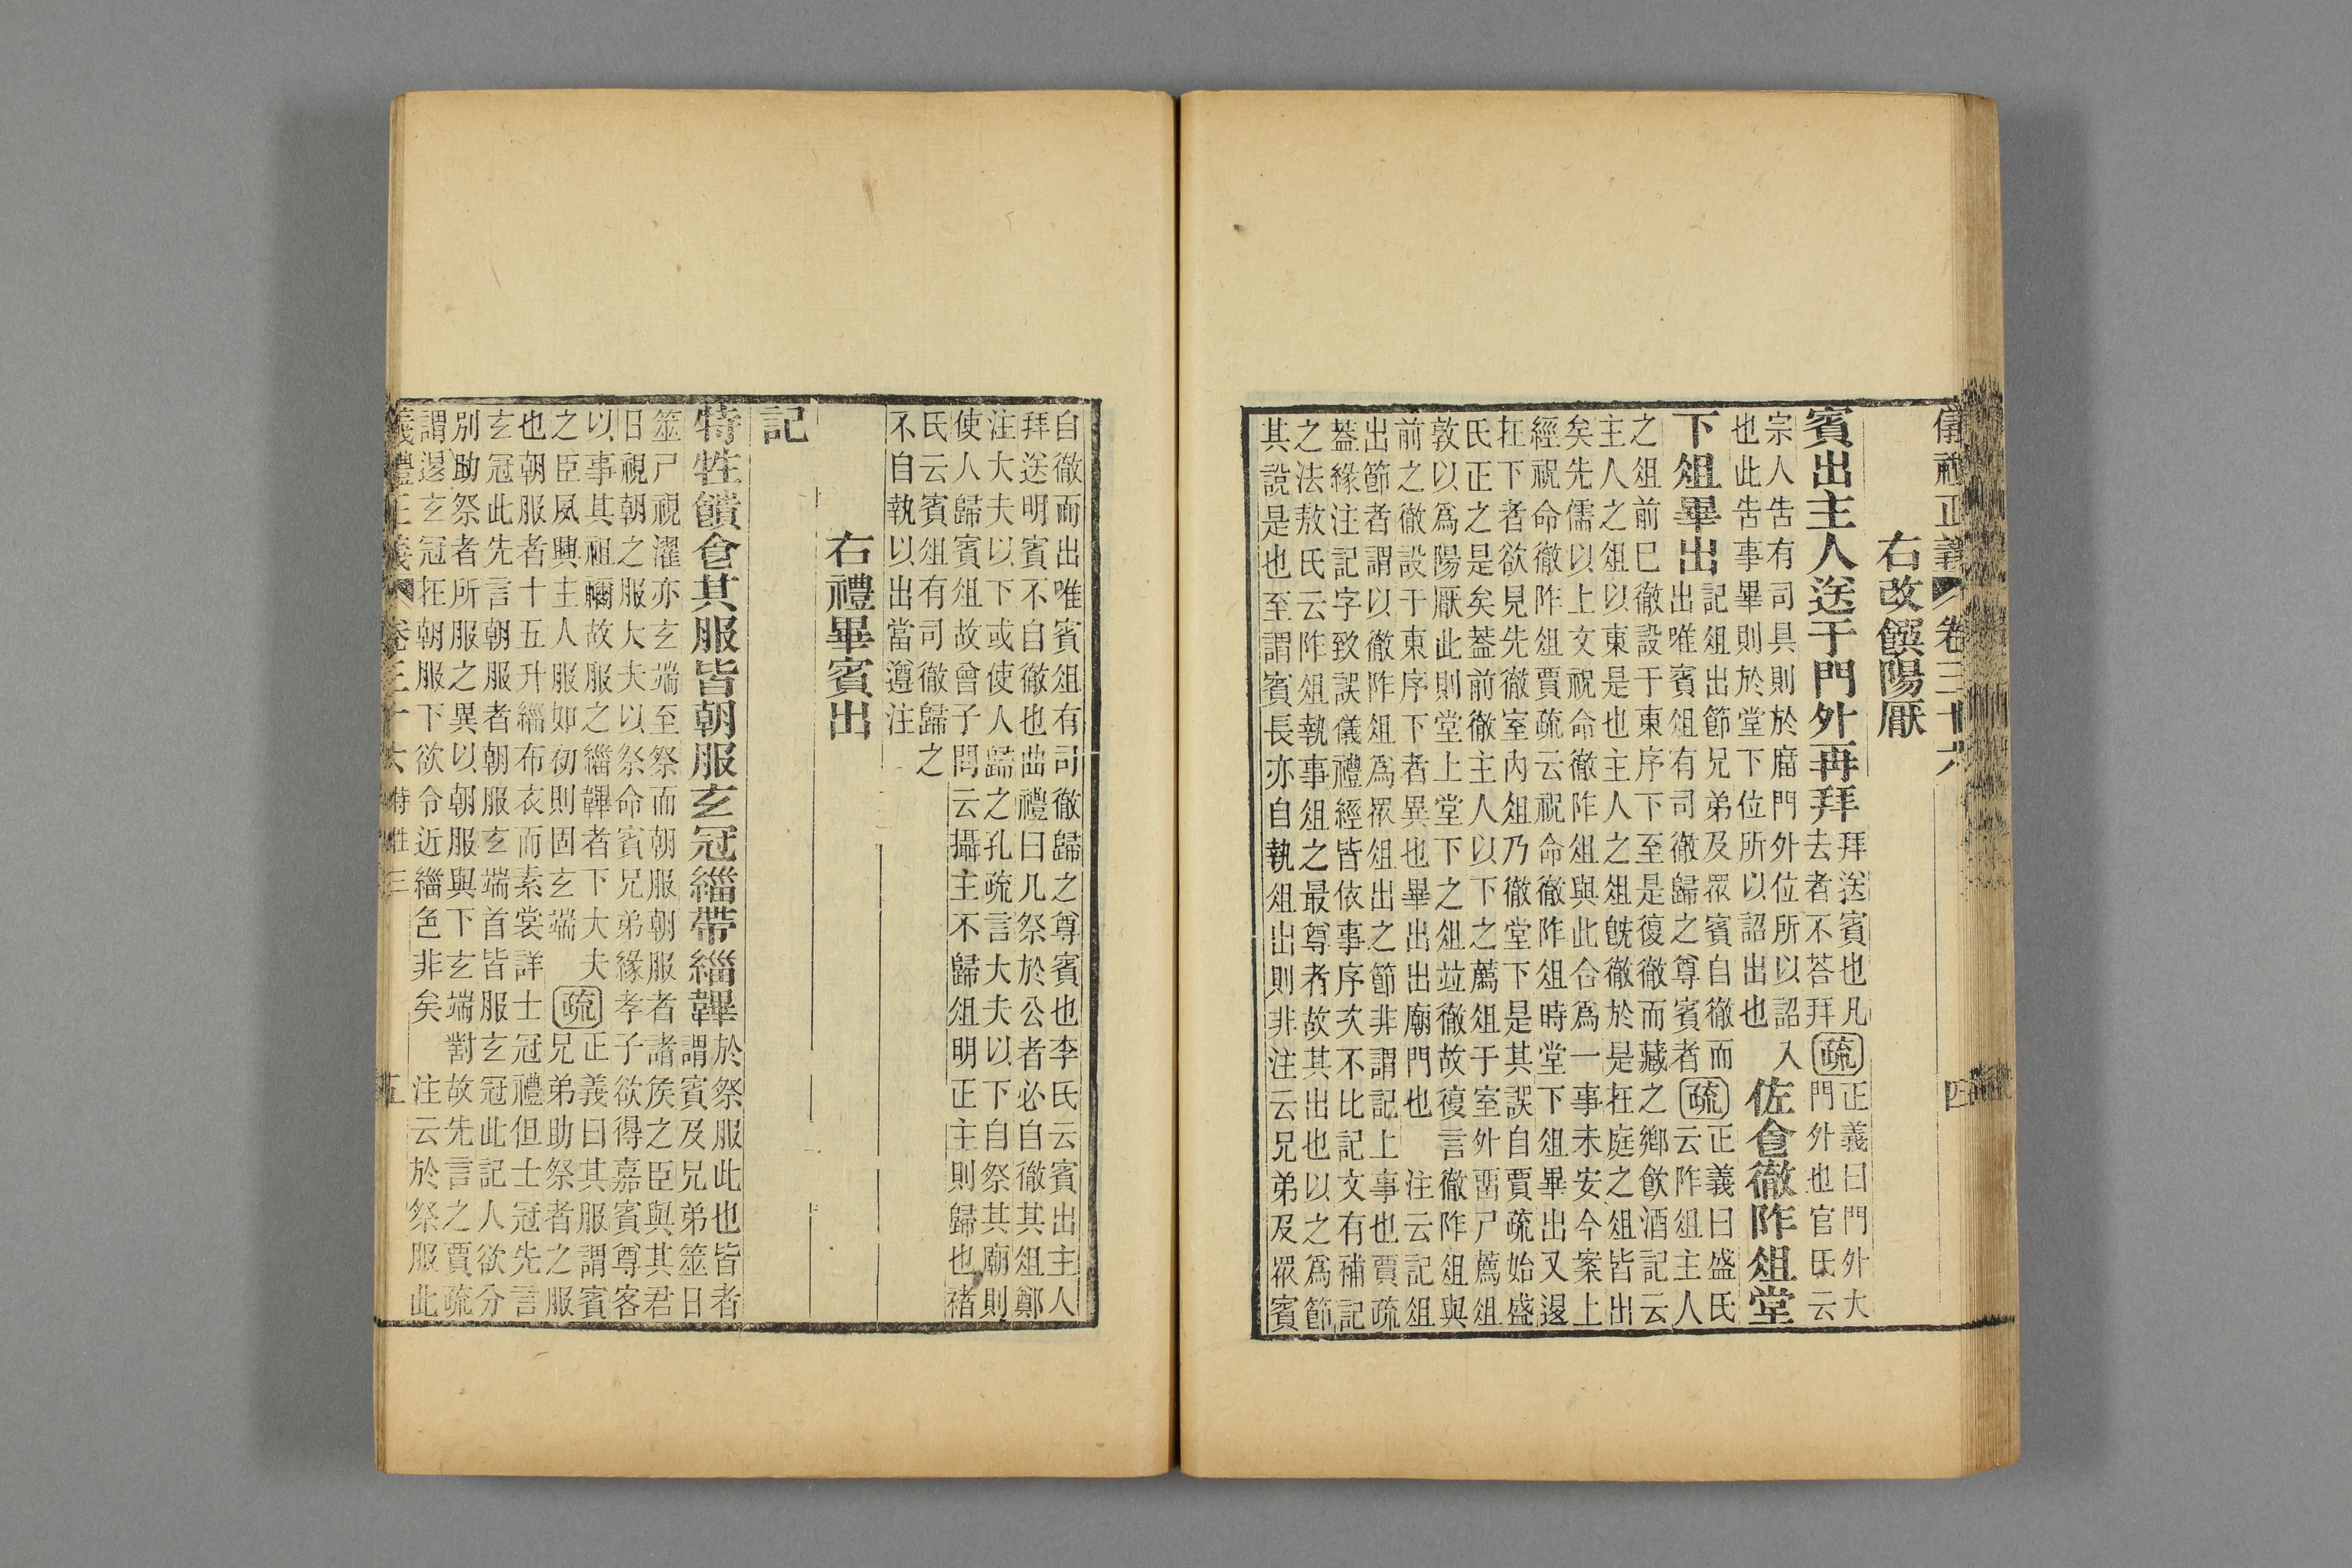 儀禮正義 卷三十六 四
右改饌陽厭
賓出主人送于門外再拜
拜送賓也凡
去者不荅拜
疏
正義曰門外大
門外也官氏云
宗人告有司具則於庿門外位所以詔入
也此告事畢則於堂下位所以詔出也
佐食徹阼俎堂
下俎畢出
記俎出節兄弟及眾賓自徹而
出唯賓俎有司徹歸之尊賓者
疏
正義曰盛氏
云阼俎主人
之俎前已徹設于東序下至是復徹而藏之鄉飲酒記云
主人之俎以東是也主人之俎旣徹於是在庭之俎皆出
矣先儒以上文祝命徹阼俎與此合爲一事未安今案上
經祝命徹阼俎賈疏云祝命徹阼俎時堂下俎畢出又退
在下者欲見先徹室內俎乃徹堂下是其誤自賈疏始盛
氏正之是矣蓋前徹主人以下之薦俎于室外西尸薦俎
敦以爲陽厭此則堂上堂下之俎竝徹故復言徹阼俎與
前之徹設于東序下者異也畢出出廟門也 注云記俎
出節者謂以徹阼俎爲眾俎出之節非謂記上事也賈疏
蓋緣注記字致誤儀禮經皆依事序次不比記文有補記
之法敖氏云阼俎執事俎之最尊者故其出也以之爲節
其說是也至謂賓長亦自執俎出則非注云兄弟及眾賓
自徹而出唯賓俎有司徹歸之尊賓也李氏云賓出主人
拜送明賓不自徹也曲禮曰凡祭於公者必自徹其俎鄭
注大夫以下或使人歸之孔疏言大夫以下自祭其廟則
使人歸賓俎故曾子問云攝主不歸俎明正主則歸也褚
氏云賓俎有司徹歸之
不自執以出當遵注
右禮畢賓出
記
特牲饋食其服皆朝服玄冠緇帶緇韠
於祭服此也皆者
謂賓及兄弟筮日
筮尸視濯亦玄端至祭而朝服朝服者諸侯之臣與其君
日視朝之服大夫以祭命賓兄弟緣孝子欲得嘉賓尊客
以事其祖禰故服之緇韠者下大夫
之臣夙興主人服如初則固玄端
疏
正義曰其服謂賓
兄弟助祭者之服
也朝服者十五升緇布衣而素裳詳士冠禮但士冠先言
玄冠此先言朝服者朝服玄端首皆服玄冠此記人欲分
別助祭者所服之異以朝服與下玄端對故先言之賈疏
謂退玄冠在朝服下欲令近緇色非矣 注云於祭服此
儀禮正義 卷三十六 特牲三 五